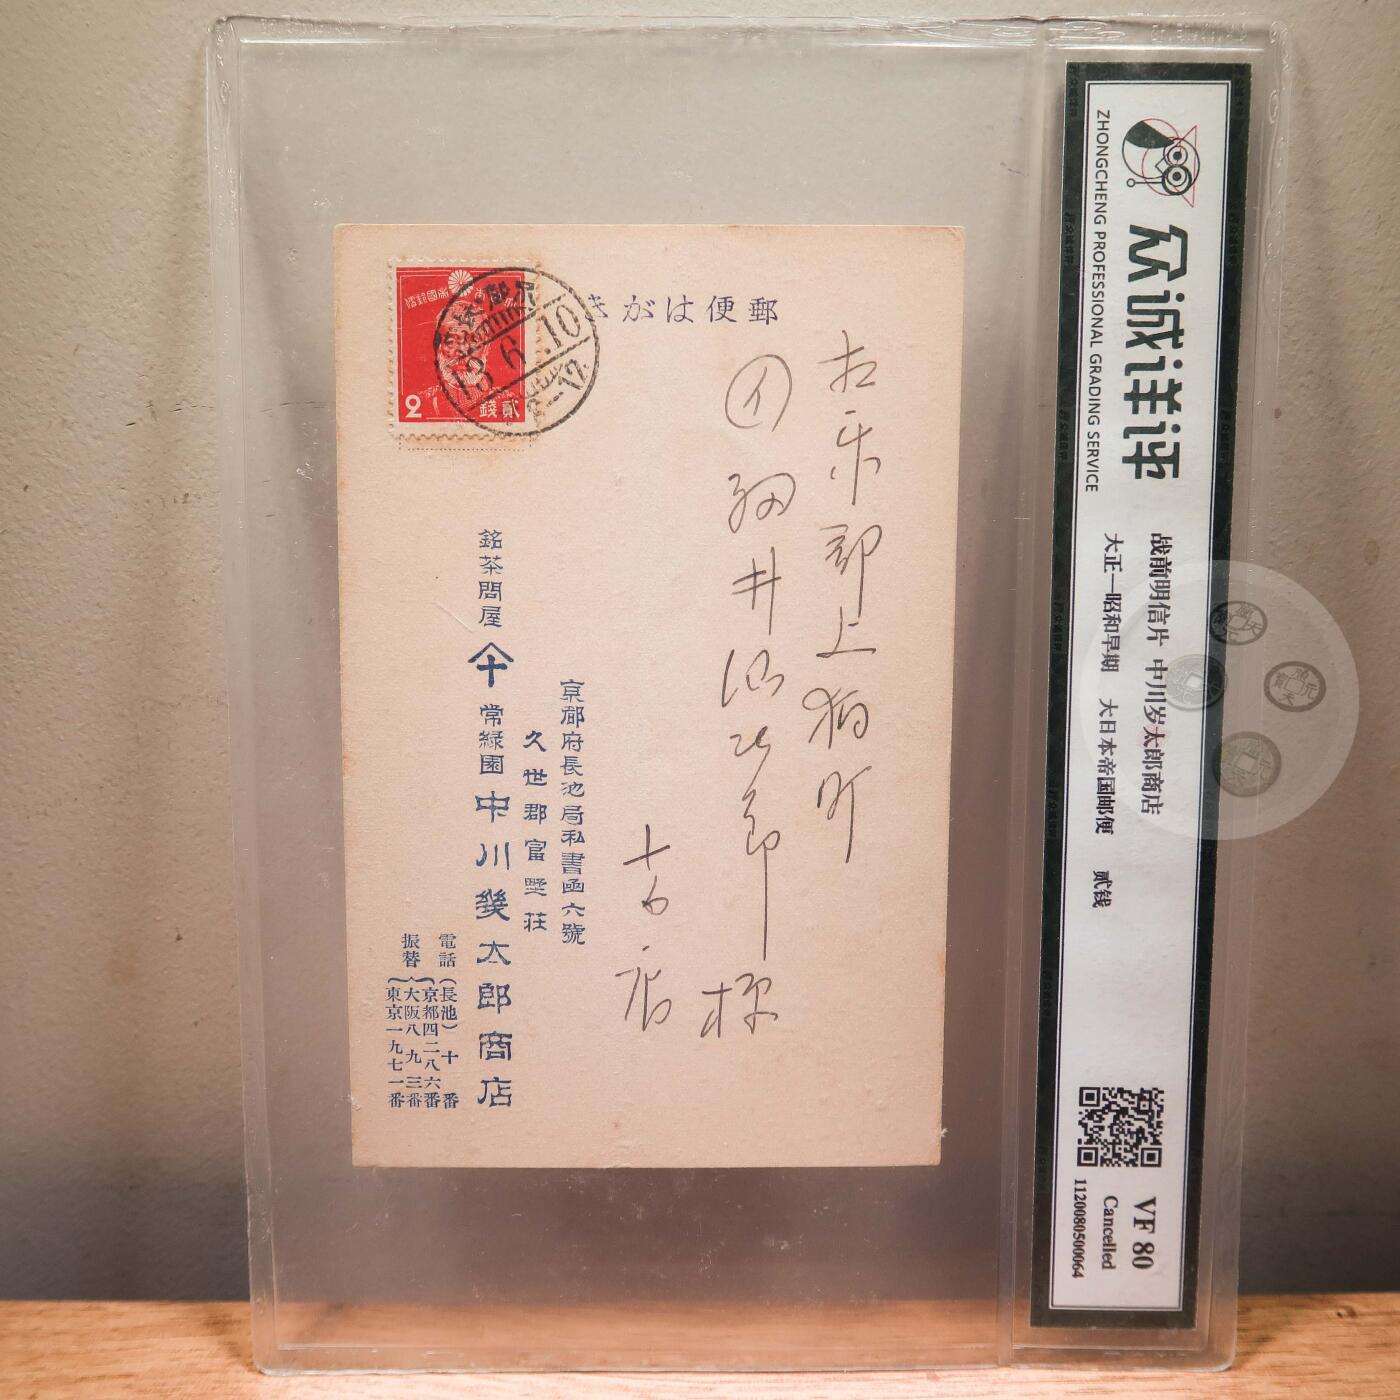 郵便はがき
大日本帝國郵便
2
貳錢
13.6.10
相楽郡上狛町
イ 細井治比郎様
十文店
京都府長池局私書函六號
久世郡富野荘
銘茶問屋 常緑園 中川幾太郎商店
電話(長池)十番
京都四二八六番
振替 大阪八九三番
東京一九七一番
众诚评评
ZHONGCHENG PROFESSIONAL GRADING SERVICE
战前明信片 中川岁太郎商店
大正一昭和早期 大日本帝国邮便 贰钱
VF 80
Cancelled
1120080500064